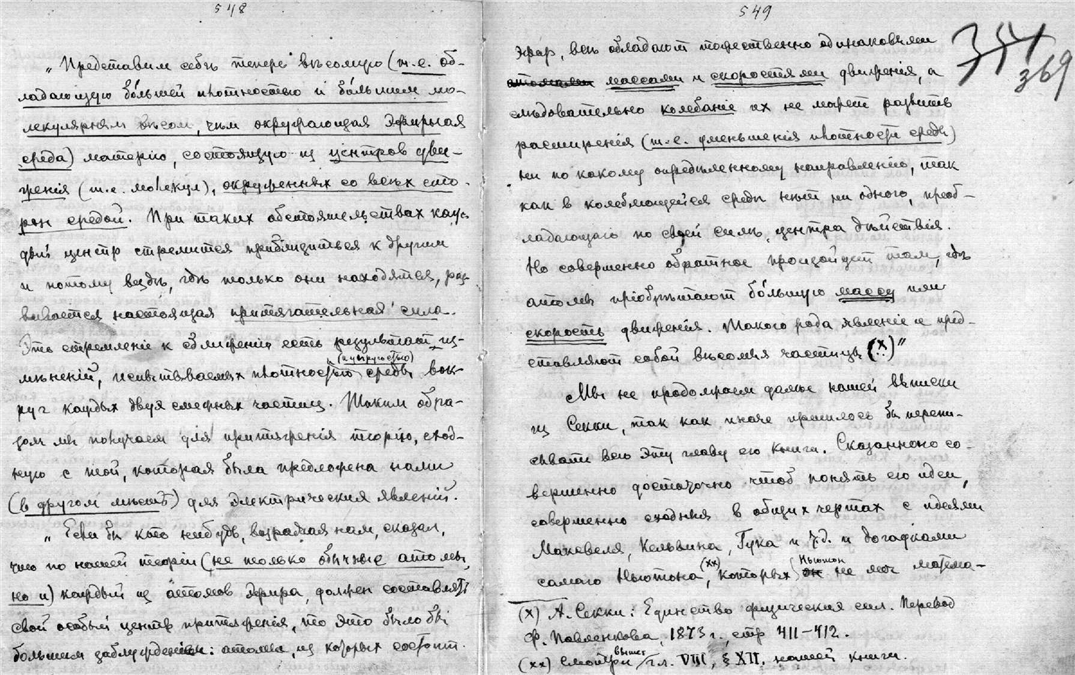 548
„Представим себѣ теперь вѣсомую (т.е. об-
ладающую большей плотностью и большим мо-
лекулярным вѣсом, чем окружающая эфирная
среда) матерію, состоящую из центров дви-
женія (т.е. молекул), окруженных со всех сто-
рон средой. При таких обстоятельствах каж-
дый центр стремится приблизиться к другим
и потому вездѣ, гдѣ только они находятся, раз
вивается настоящая притягательная сила.
Это стремленіе к сближенію есть результат из-
мѣненій, испытываемых плотностью (и упругостью) среды вок-
руг каждых двух смежных частиц. Таким обра-
зом мы получаем для притяженія теорію, сход-
ную с той, которая была предложена нами
(в другом мѣстѣ) для электрических явленій.
„Если бы кто нибудь, возражая нам, сказал,
что по нашей теоріи (не только обычные атомы,
но и) каждый из атомов эфира должен составлять
свой особый центр притяженія, то это было бы
большим заблужденіем: атомы, из которых состоит
549
351
369
эфир, все обладают тождественно одинаковыми
массами и скоростями движенія, а
следовательно колебаніе их не может развить
расширенія (т.е. уменьшенія плотности среды)
ни по какому определенному направленію, так
как в колеблющейся среде нет ни одного, преоб-
ладающаго по своей силе, центра дѣйствія.
Но совершенно обратное произойдет там, гдѣ
атомы пріобрѣтают большую массу или
скорость движенія. Такого рода явленіе и пред-
ставляют собой вѣсомыя частицы (x)“
Мы не продолжаем далее нашей выписки
из Секки, так как иначе пришлось бы перепи-
сывать всю эту главу его книги. Сказанного со-
вершенно достаточно чтоб понять его идеи,
совершенно сходныя в общих чертах с идеями
Максвеля, Кельвина, Гука и т.д. и догадками
самаго Ньютона (xx), которых Ньютон не мог матема-
(x) А. Секки: Единство физических сил. Перевод
Ф. Павленкова, 1873 г. стр 411–412.
(xx) Смотри выше гл. VIII, § XII, нашей книги.